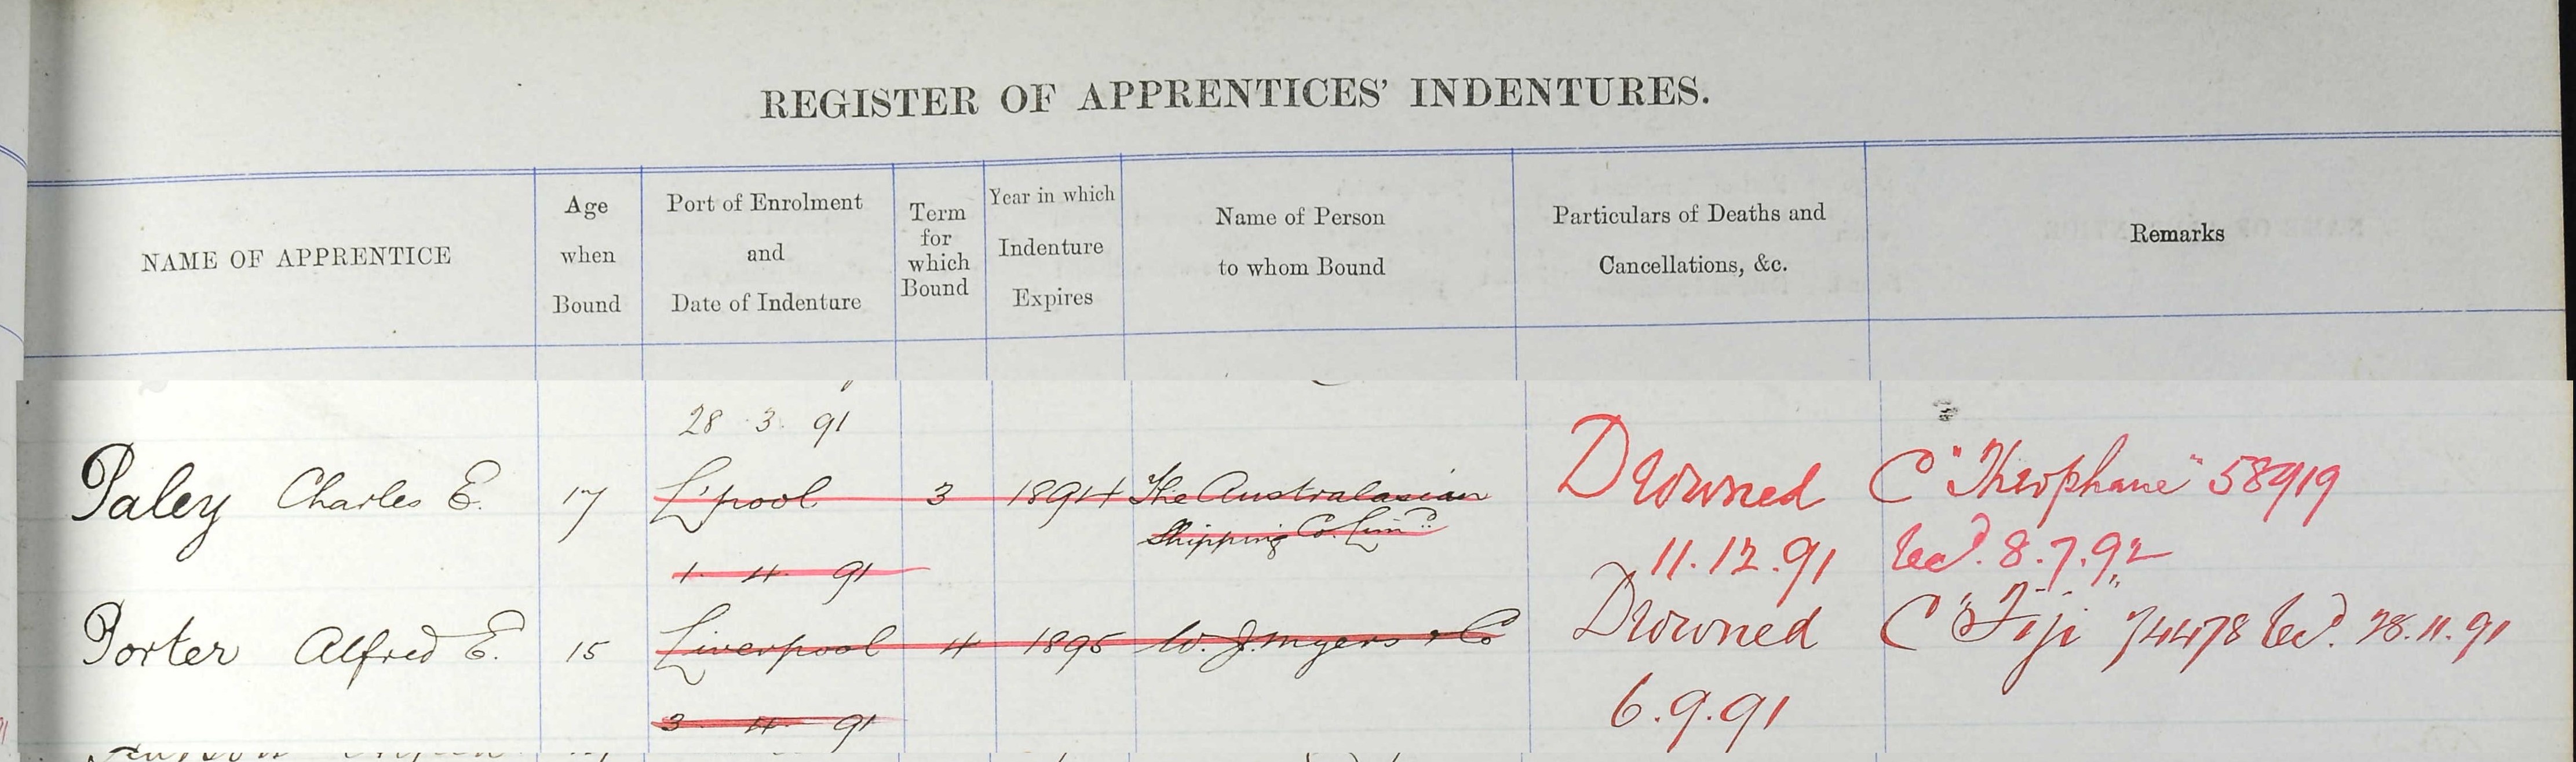 REGISTER OF APPRENTICES' INDENTURES.
NAME OF APPRENTICE
Age
when
Bound
Port of Enrolment
and
Date of Indenture
Term
for
which
Bound
Year in which
Indenture
Expires
Name of Person
to whom Bound
Particulars of Deaths and
Cancellations, &c.
Remarks
28 3. 91
Paley Charles E. 17 L'pool 3 1894 The Australasian Drowned C "Theophane" 58919
Shipping Co. Limd
1. 4. 91 11.12.91 8.7.92
Porter Alfred E. 15 Liverpool 4 1895 W. J. Myers & Co Drowned C "Fiji" 74478 28.11.91
3 4. 91 6.9.91